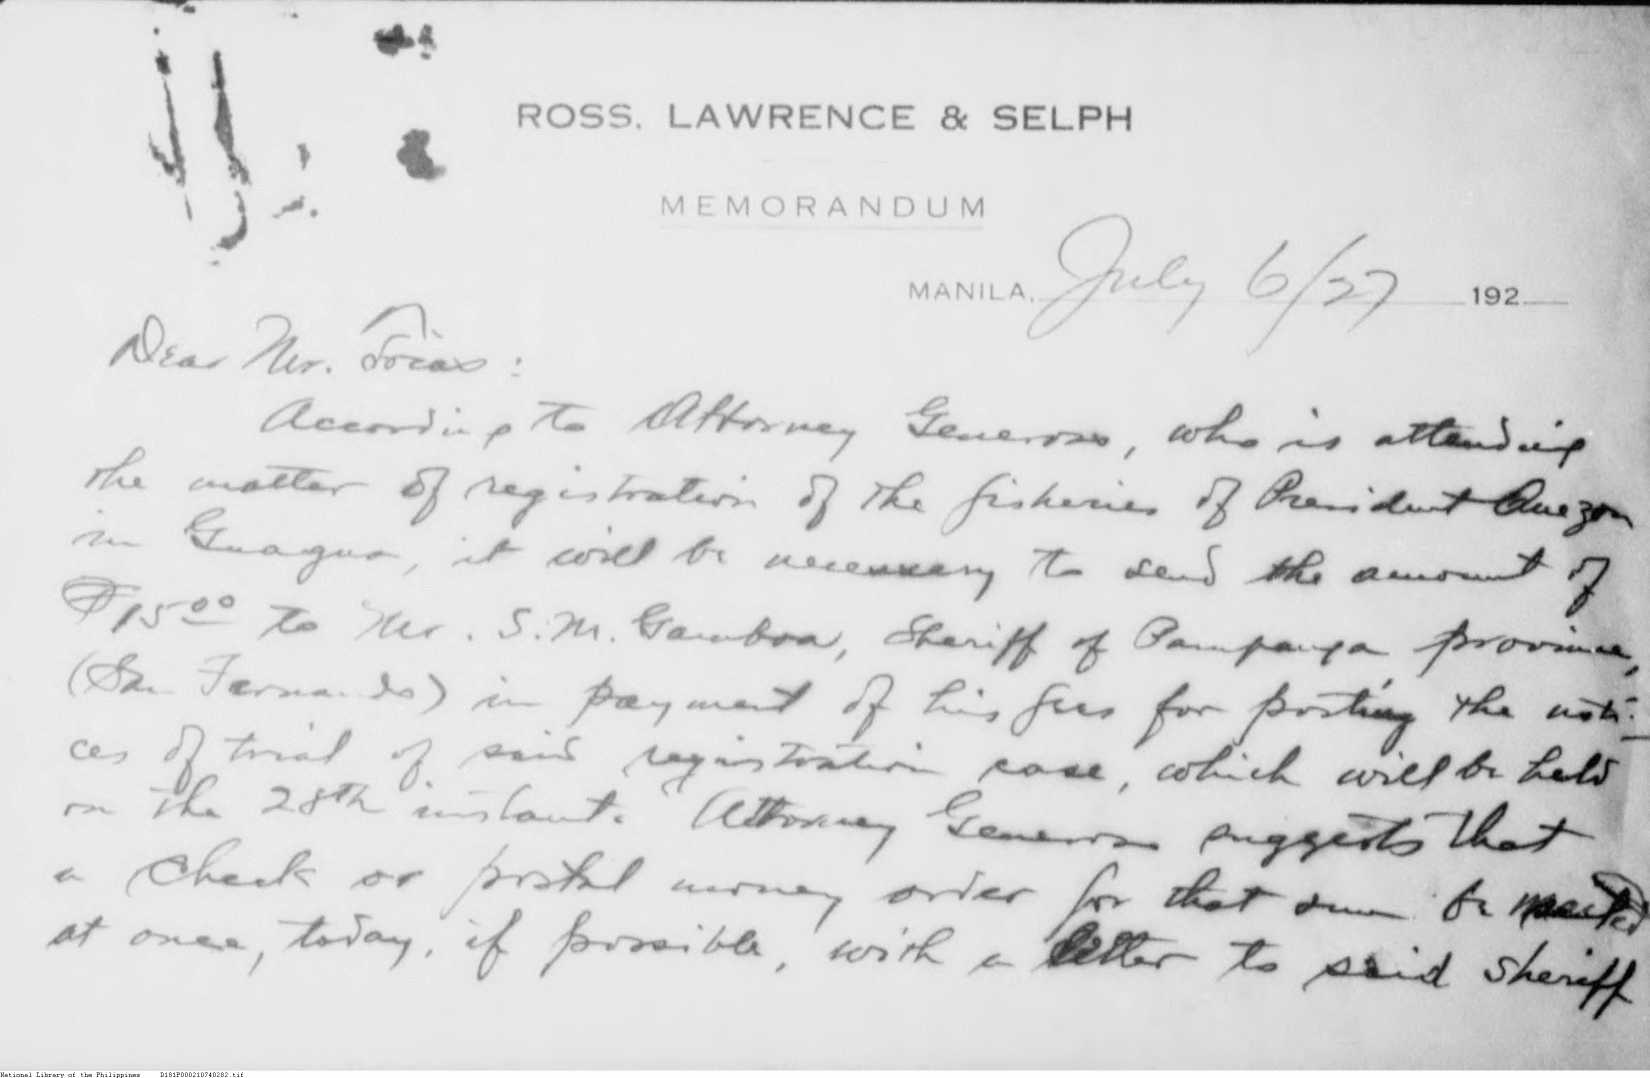 ROSS, LAWRENCE & SELPH
MEMORANDUM
MANILA, July 6/27 192
Dear Mr.
According to Attorney Generoso, who is attending
the matter of registration of the fisheries of President Quezon
in Guagua, it will be necessary to send the amount of
₱15.00 to Mr. S. M. Gamboa, Sheriff of Pampanga province,
(San Fernando) in payment of his fees for posting the noti-
ces of trial of said registration case, which will be held
on the 28th instant. Attorney Generoso suggests that
a check or postal money order for that sum be mailed
at once, today, if possible, with a letter to said Sheriff
National Library of the Philippines D181P000210740202.tif